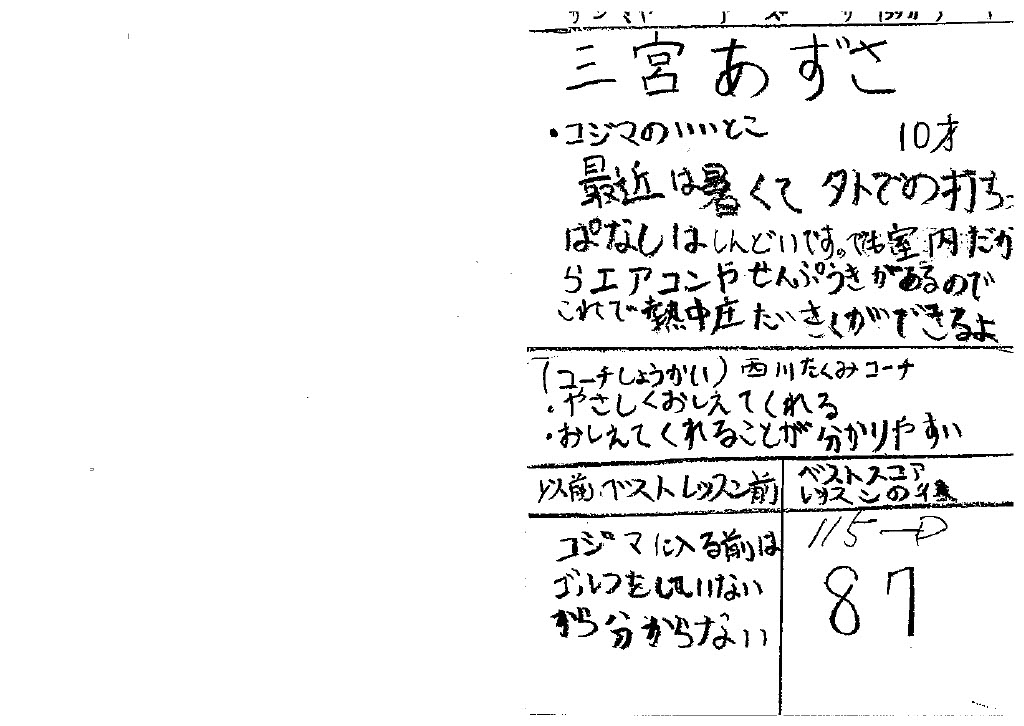 三宮あずさ
・コジマのいいとこ 10才
最近は暑くて外での打ち
ぱなしはしんどいです。でも室内だか
らエアコンやせんぷうきがあるので
これで熱中症たいさくができるよ
(コーチしょうかい) 西川たくみコーチ
・やさしくおしえてくれる
・おしえてくれることが分かりやすい
以前ベストレッスン前
ベストスコア
レッスンの後
コジマに入る前は
ゴルフをしていない
から分からない
115→
87